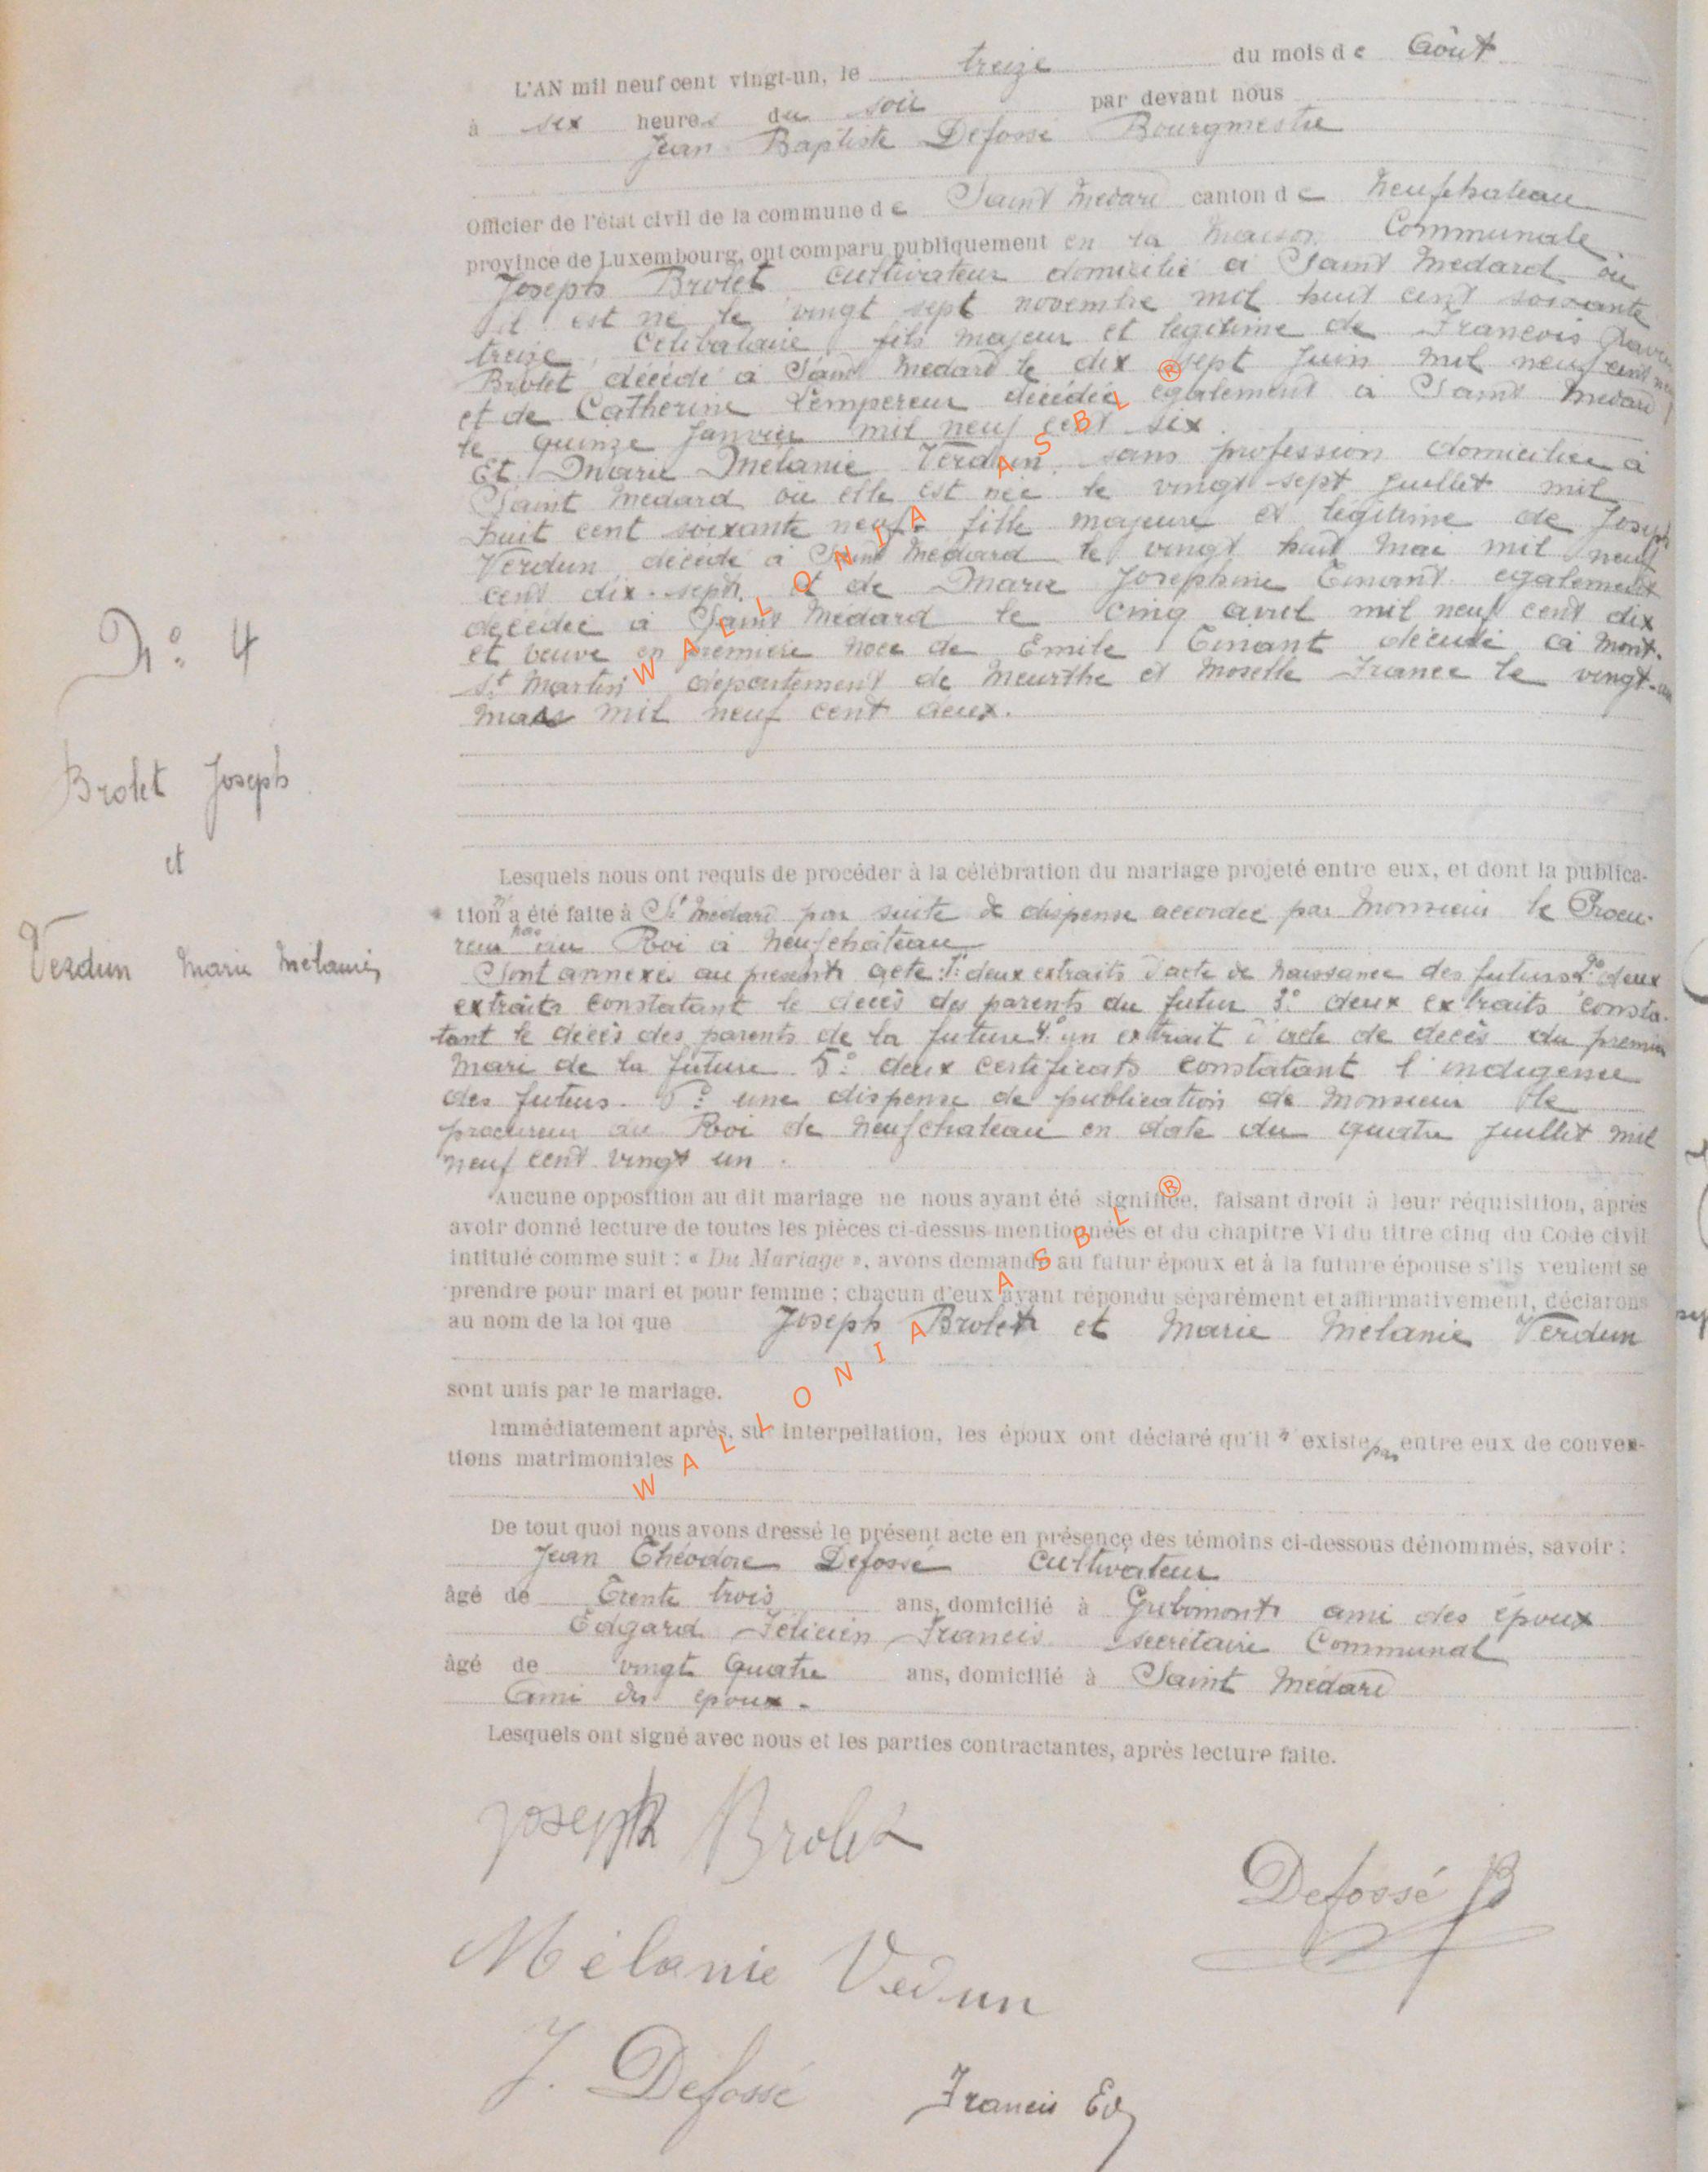 L'AN mil neuf cent vingt-un, le treize du mois de Août
à six heures du soir par devant nous
Jean Baptiste Defossé Bourgmestre
Officier de l'état civil de la commune de Saint Médard canton de Neufchateau
province de Luxembourg, ont comparu publiquement en la maison Communale
Joseph Brolet cultivateur domicilié à Saint Médard où
il est né le vingt sept novembre mil huit cent soixante
treize, Célibataire fils majeur et légitime de François
Brolet décédé à Saint Médard le dix sept Juin mil neuf cent
et de Catherine Lempereur décédée également à Saint Médard
le quinze Janvier mil neuf cent six.
Et Marie Mélanie Verdun sans profession domiciliée à
Saint Médard où elle est née le vingt sept juillet mil
huit cent soixante neuf fille majeure et légitime de Joseph
Verdun décédé à Saint Médard le vingt huit Mai mil neuf
cent dix-sept et de Marie Josephine Tinant également
décédée à Saint Médard le cinq avril mil neuf cent dix
et veuve en première noce de Emile Tinant décédé à Mont-
St Martin département de Meurthe et Moselle France le vingt-
mars mil neuf cent deux.
N° 4
Brolet Joseph
et
Verdun Marie Mélanie
Lesquels nous ont requis de procéder à la célébration du mariage projeté entre eux, et dont la publica-
tion n'a pas été faite à St Médard par suite de dispense accordée par Monsieur le Procu-
reur du Roi à Neufchâteau
Sont annexés au présent acte: 1° deux extraits d'acte de naissance des futurs 2° deux
extraits constatant le décès des parents du futur 3° deux extraits consta-
tant le décès des parents de la future 4° un extrait d'acte de décès du premier
mari de la future. 5° deux certificats constatant l'indigence
des futurs. 6° une dispense de publication de Monsieur le
procureur du Roi de Neufchateau en date du quatre juillet mil
neuf cent vingt un.
Aucune opposition au dit mariage ne nous ayant été signifiée, faisant droit à leur réquisition, après
avoir donné lecture de toutes les pièces ci-dessus mentionnées et du chapitre VI du titre cinq du Code civil
intitulé comme suit : « Du Mariage », avons demandé au futur époux et à la future épouse s'ils veulent se
prendre pour mari et pour femme ; chacun d'eux ayant répondu séparément et affirmativement, déclarons
au nom de la loi que Joseph Brolet et Marie Mélanie Verdun
sont unis par le mariage.
Immédiatement après, sur interpellation, les époux ont déclaré qu'il n'existe pas entre eux de conven-
tions matrimoniales
De tout quoi nous avons dressé le présent acte en présence des témoins ci-dessous dénommés, savoir :
Jean Théodore Defossé Cultivateur
âgé de Trente trois ans, domicilié à Gribomont ami des époux
Edgard Félicien Francis secrétaire Communal
âgé de vingt quatre ans, domicilié à Saint Médard
Ami des époux.
Lesquels ont signé avec nous et les parties contractantes, après lecture faite.
Joseph Brolet
Defossé JB
Mélanie Vedun
J. Defossé Francis Ed
WALLONIA ASBL ®
WALLONIA ASBL ®